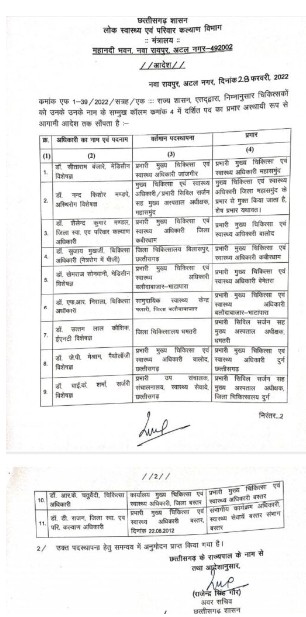 छत्तीसगढ़ शासन
लोक स्वास्थ्य एवं परिवार कल्याण विभाग
:: मंत्रालय ::
महानदी भवन, नवा रायपुर, अटल नगर–492002
//आदेश//
नवा रायपुर, अटल नगर, दिनांक 28 फरवरी, 2022
क्रमांक एफ 1–39/2022/सत्रह/एक :: राज्य शासन, एतद्द्वारा, निम्नानुसार चिकित्सकों
को उनके उनके नाम के सम्मुख कॉलम क्रमांक 4 में दर्शित पद का प्रभार अस्थायी रूप से
आगामी आदेश तक सौंपता है :–
क्र. अधिकारी का नाम एवं पदनाम वर्तमान पदस्थापना प्रभार
(1) (2) (3) (4)
1. डॉ. सीताराम बंजारे, मेडिसीन विशेषज्ञ प्रभारी मुख्य चिकित्सा एवं स्वास्थ्य अधिकारी जांजगीर प्रभारी मुख्य चिकित्सा एवं स्वास्थ्य अधिकारी महासमुंद
2. डॉ. नन्द किशोर मण्डपे, अस्थिरोग विशेषज्ञ मुख्य चिकित्सा एवं स्वास्थ्य अधिकारी/प्रभारी सिविल सर्जन सह मुख्य अस्पताल अधीक्षक, महासमुंद मुख्य चिकित्सा एवं स्वास्थ्य अधिकारी जिला महासमुंद के प्रभार से मुक्त किया जाता है, शेष प्रभार यथावत।
3. डॉ. शैलेन्द्र कुमार मण्डल, जिला स्वा. एवं परिवार कल्याण अधिकारी प्रभारी मुख्य चिकित्सा एवं स्वास्थ्य अधिकारी जिला कबीरधाम प्रभारी मुख्य चिकित्सा एवं स्वास्थ्य अधिकारी बालोद
4. डॉ. सुजाय मुखर्जी, चिकित्सा अधिकारी जिला चिकित्सालय बिलासपुर, छत्तीसगढ़ प्रभारी मुख्य चिकित्सा एवं स्वास्थ्य अधिकारी कबीरधाम
5. डॉ. खेमराज सोनवानी, मेडिसीन विशेषज्ञ प्रभारी मुख्य चिकित्सा एवं स्वास्थ्य अधिकारी बलौदाबाजार–भाटापारा प्रभारी मुख्य चिकित्सा एवं स्वास्थ्य अधिकारी बेमेतरा
6. डॉ. एफ.आर. निराला, चिकित्सा अधिकारी सामुदायिक स्वास्थ्य केन्द्र जिला बलौदाबाजार प्रभारी मुख्य चिकित्सा एवं स्वास्थ्य अधिकारी बलौदाबाजार–भाटापारा
7. डॉ. लाल कौशिक, ईएनटी विशेषज्ञ जिला चिकित्सालय धमतरी प्रभारी सिविल सर्जन सह मुख्य अस्पताल अधीक्षक, धमतरी
8. डॉ. जे.पी. मेश्राम, पैथोलॉजी विशेषज्ञ प्रभारी मुख्य चिकित्सा एवं स्वास्थ्य अधिकारी बालोद, छत्तीसगढ़ प्रभारी मुख्य चिकित्सा एवं स्वास्थ्य अधिकारी दुर्ग छत्तीसगढ़
9. डॉ. वाई.के. शर्मा, सर्जरी विशेषज्ञ प्रभारी उप संचालक, संचालनालय, स्वास्थ्य सेवायें, छत्तीसगढ़ प्रभारी सिविल सर्जन सह मुख्य अस्पताल अधीक्षक, जिला चिकित्सालय दुर्ग
निरंतर..2
//2//
10. डॉ. आर.के. चतुर्वेदी, चिकित्सा अधिकारी कार्यालय मुख्य चिकित्सा एवं स्वास्थ्य अधिकारी, जिला बस्तर प्रभारी मुख्य चिकित्सा एवं स्वास्थ्य अधिकारी बस्तर
11. डॉ. डी. राजन, जिला स्वा. एवं परि. कल्याण अधिकारी प्रभारी मुख्य चिकित्सा एवं स्वास्थ्य अधिकारी बस्तर, दिनांक 22.08.2012 संभागीय कार्यक्रम अधिकारी, स्वास्थ्य सेवायें बस्तर संभाग बस्तर
2/ उक्त पदस्थापना हेतु समन्वय में अनुमोदन प्राप्त किया गया है।
छत्तीसगढ़ के राज्यपाल के नाम से
तथा आदेशानुसार,
(राजेन्द्र सिंह गौर)
अवर सचिव
छत्तीसगढ़ शासन